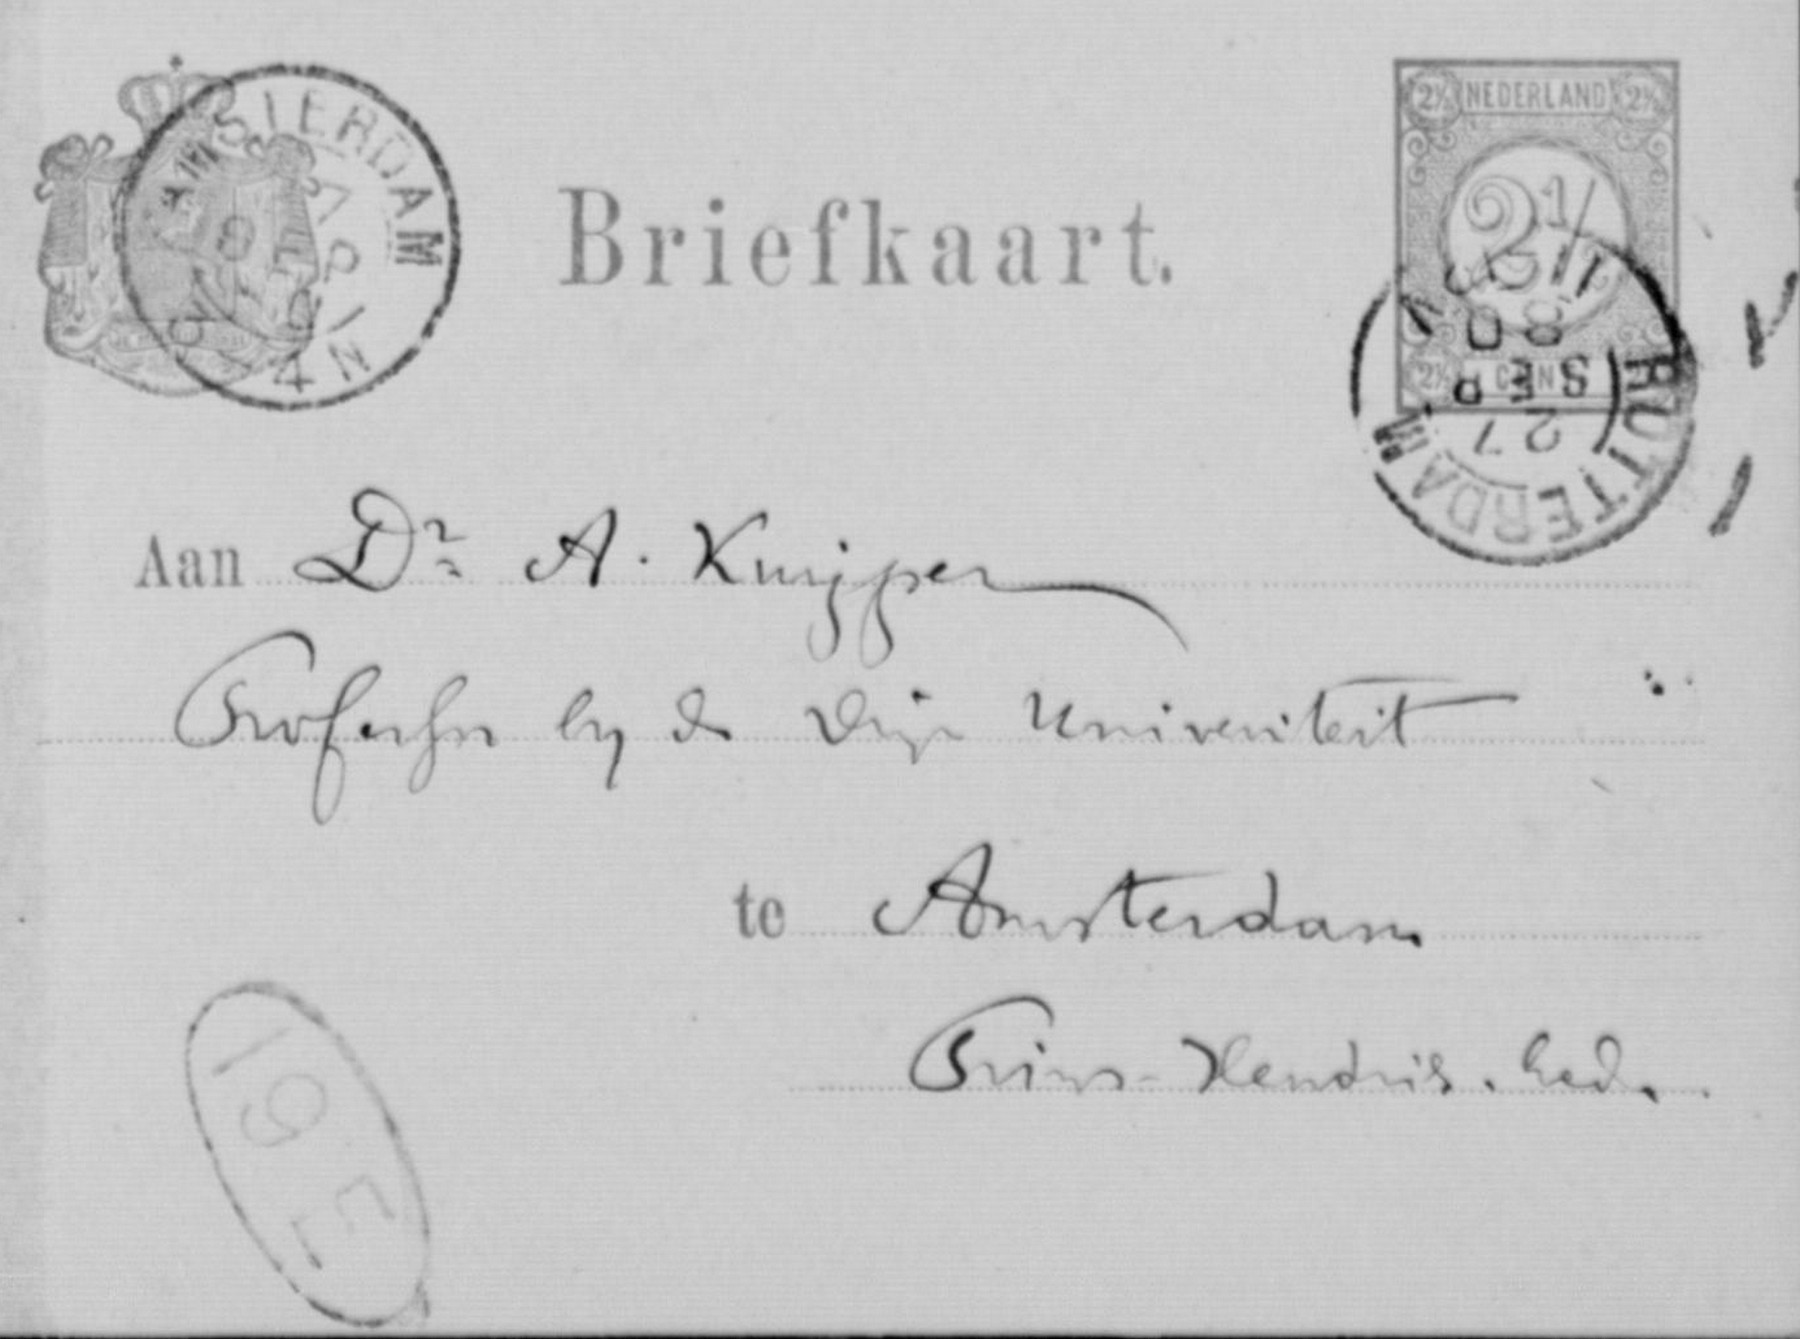 AMSTERDAM
Briefkaart.
2½ NEDERLAND 2½
2½
2½ CEN
ROTTERDAM
27
SEP
80
Aan Dr A. Kuijper
Professor by de Vrije Universiteit
te Amsterdam
Prins-Hendrik. kad.
19 E